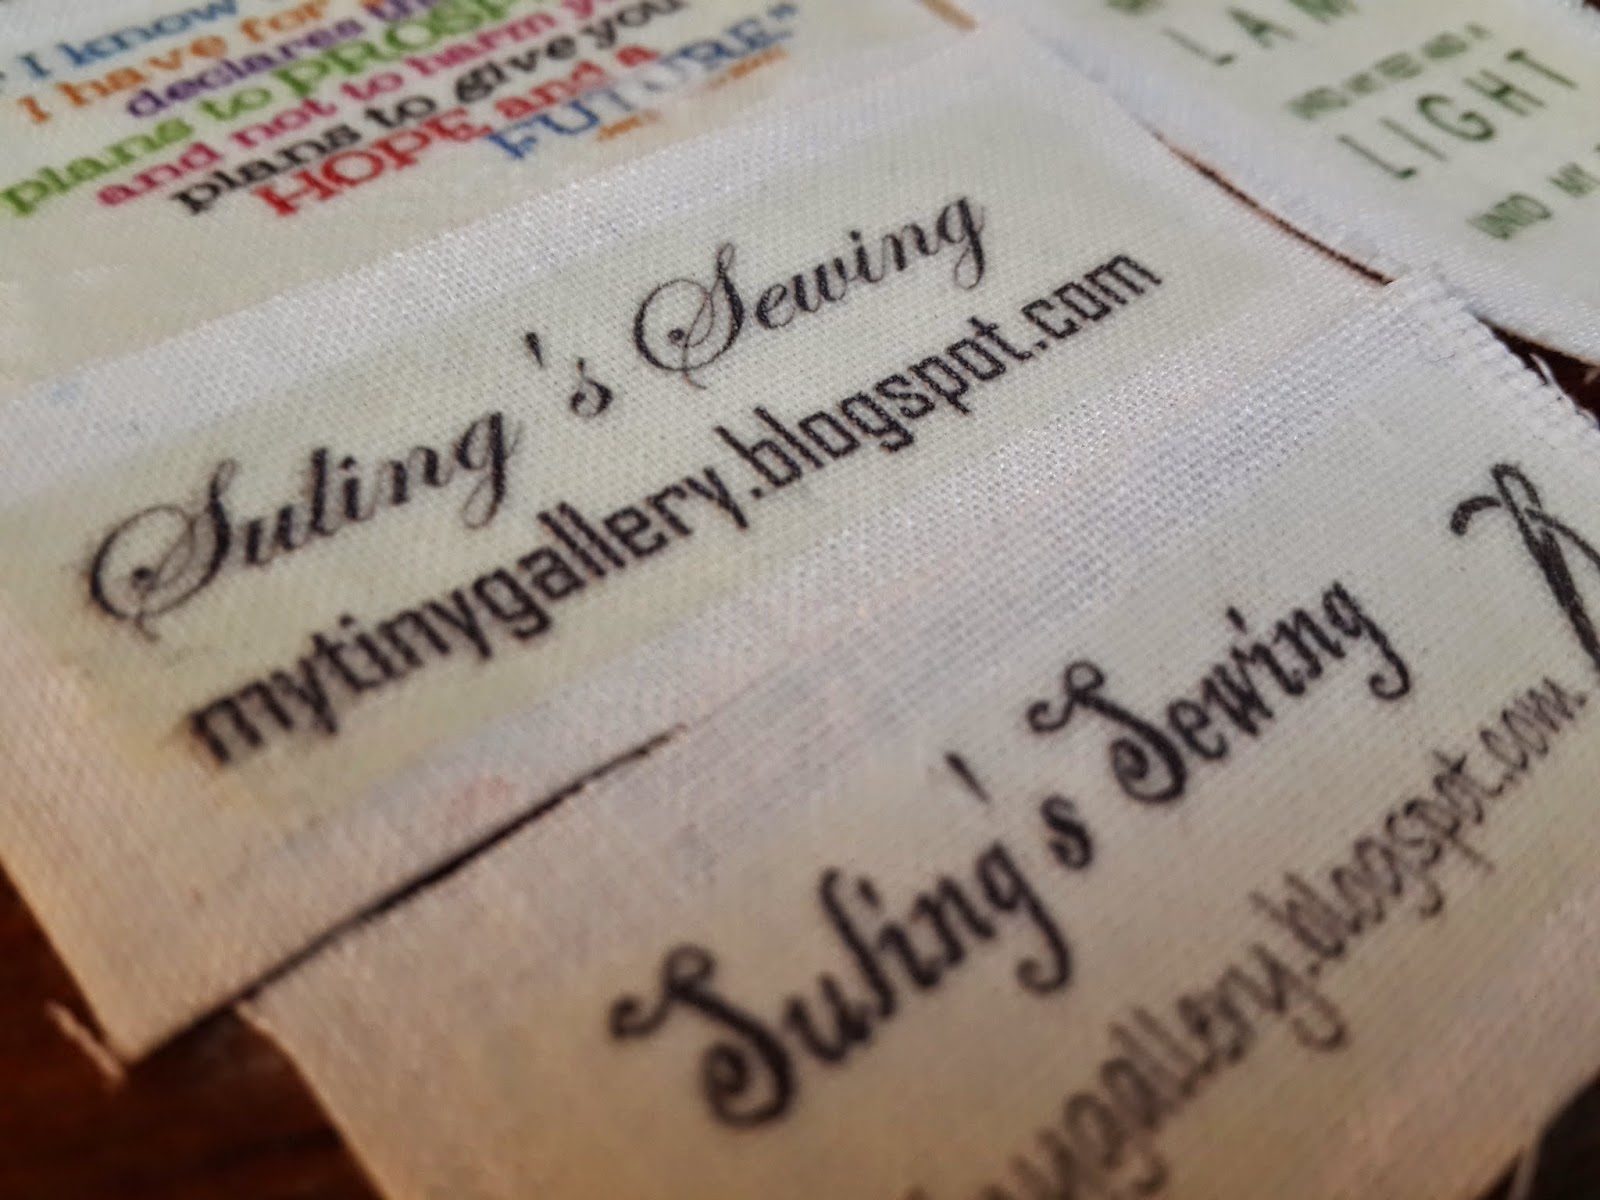 " I know
I have for
declares th
plans to PROSP
and not to harm y
plans to give you
HOPE and a
FUTURE"
LAM
LIGHT
Suling 's Sewing
mytinygallery.blogspot.com
Suling's Sewing
ygallery.blogspot.com